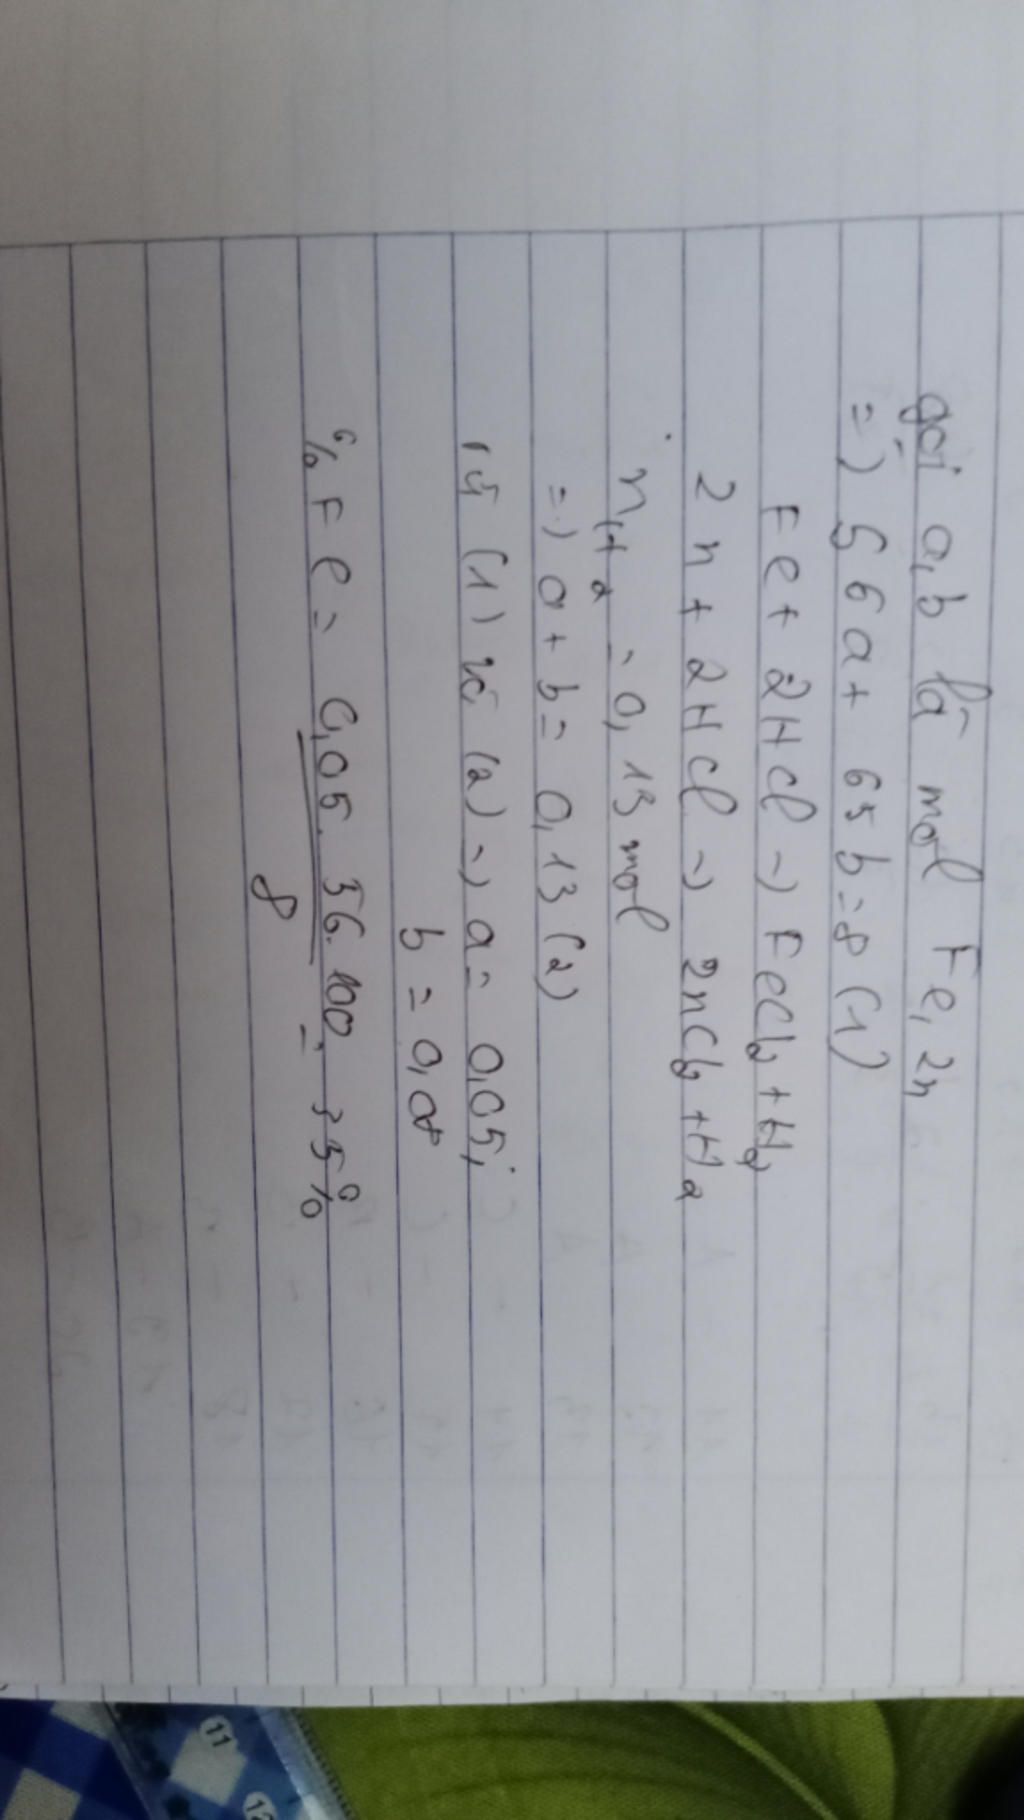 gọi a,b là mol Fe, Zn
=) 56a + 65b = 8 (1)
Fe + 2HCl -) FeCl2 + H2
Zn + 2HCl -) ZnCl2 + H2
nH2 = 0,13 mol
=) a + b = 0,13 (2)
từ (1) và (2) =) a = 0,05;
b = 0,08
% Fe = 0,05.56.100 = 35%
8
11
12